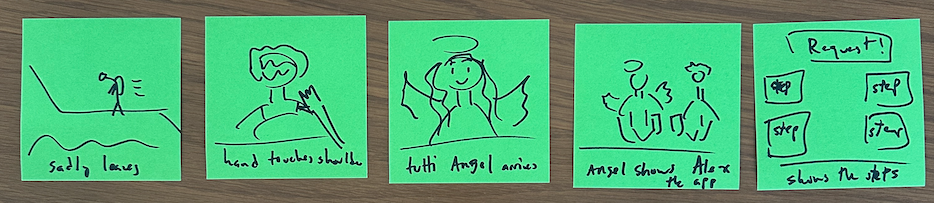 sadly leaves
hand touches shoulder
tutti Angel arrives
Angel shows Alex
the app
Request!
step
step
step
step
shows the steps